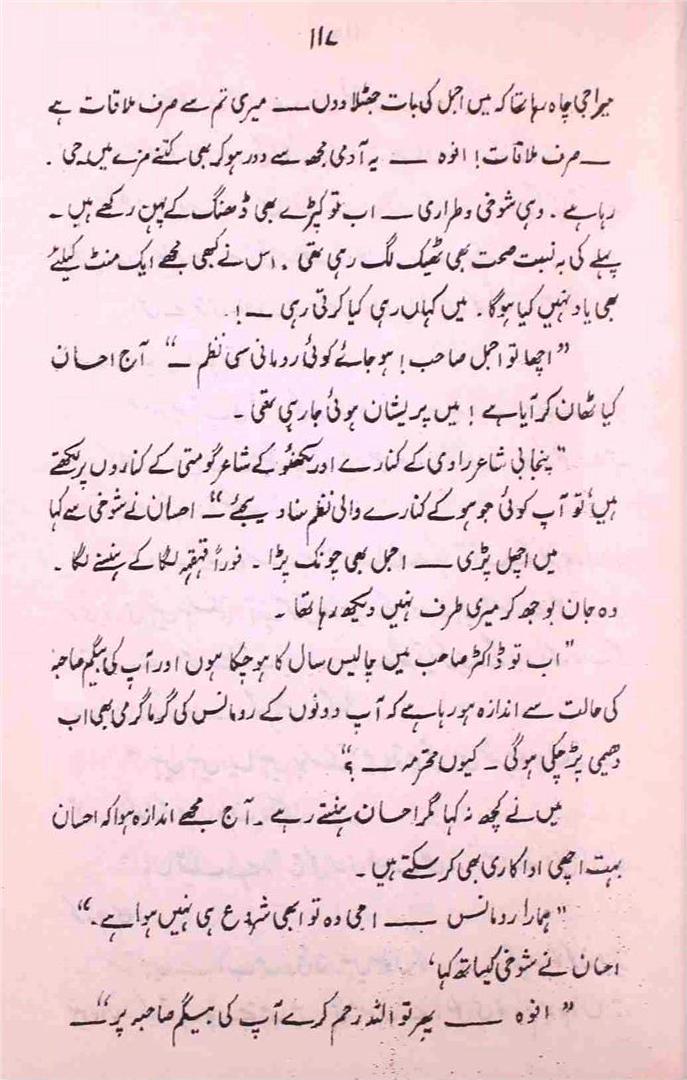 ۱۱۷
میرا جی چاہ رہا تھا کہ میں اجمل کی بات جھٹلا دوں ـــ میری تم سے صرف ملاقات ہے
ـــ صرف ملاقات! افوہ ـــ یہ آدمی مجھ سے دور ہو کر بھی کتنے مزے میں جی
رہا ہے۔ وہی شوخی و طراری ـــ اب تو کپڑے بھی ڈھنگ کے پہن رکھے ہیں۔
پہلے کی بہ نسبت صحت بھی ٹھیک لگ رہی تھی۔ اس نے کبھی مجھے ایک منٹ کیلئے
بھی یاد نہیں کیا ہوگا۔ میں کہاں رہی کیا کرتی رہی ـــ!
”اچھا تو اجمل صاحب! ہو جائے کوئی رومانی سی نظم ـــ“ آج احسان
کیا ٹھان کر آیا ہے! میں پریشان ہوئی جا رہی تھی۔
”پنجابی شاعر راوی کے کنارے اور لکھنؤ کے شاعر گومتی کے کناروں پر لکھتے
ہیں، تو آپ کوئی جوہو کے کنارے والی نظم سنا دیجئے ـــ“ احسان نے شوخی سے کہا
میں اچھل پڑی ـــ اجمل بھی چونک پڑا۔ فوراً قہقہہ لگا کے ہنسنے لگا۔
وہ جان بوجھ کر میری طرف نہیں دیکھ رہا تھا۔
”اب تو ڈاکٹر صاحب میں چالیس سال کا ہو چکا ہوں اور آپ کی بیگم صاحبہ
کی حالت سے اندازہ ہو رہا ہے کہ آپ دونوں کے رومانس کی گرما گرمی بھی اب
دھیمی پڑ چکی ہوگی۔ کیوں محترمہ ـــ؟“
میں نے کچھ نہ کہا مگر احسان ہنستے رہے۔ آج مجھے اندازہ ہوا کہ احسان
بہت اچھی اداکاری بھی کر سکتے ہیں۔
”ہمارا رومانس ـــ اجی وہ تو ابھی شروع ہی نہیں ہوا ہے۔“
احسان نے شوخی کیساتھ کہا،
”افوہ ـــ پھر تو اللہ رحم کرے آپ کی بیگم صاحبہ پر ـــ“